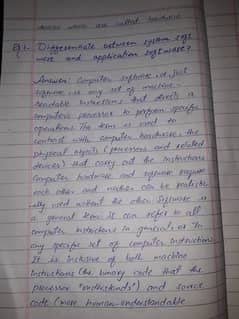 devices which are called hardware
Q1- Differentiate between system soft
ware and application software?
Answer: Computer software or just
software is any set of machine-
readable instructions that directs a
computer's processor to perform specific
operations. The term is used to
contrast with computer hardware, the
physical objects (processors and related
devices) that carry out the instructions.
Computer hardware and software require
each other and neither can be realistic
ally used without the other. Software is
a general term. It can refer to all
computer instructions in general or to
any specific set of computer instructions.
It is inclusive of both machine
instructions (the binary code that the
processor "understands") and source
code (more human-understandable